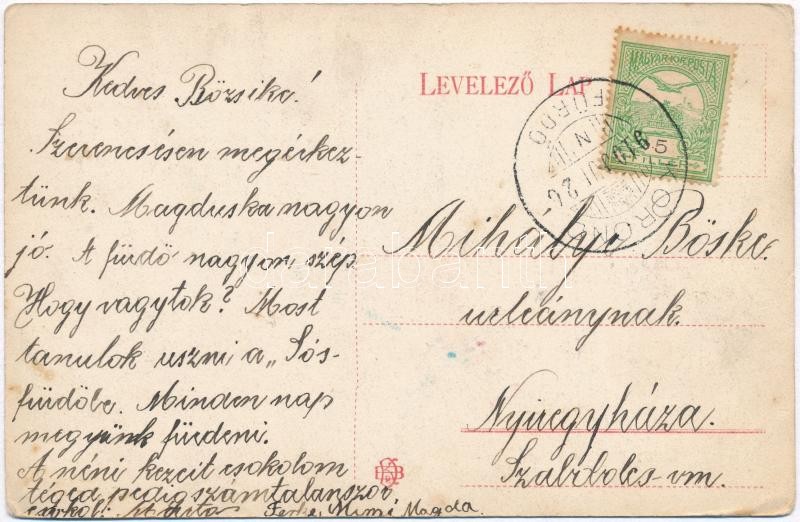 Kedves Bözsike!
Szerencsésen megérkez-
tünk. Magduska nagyon
jó. A fürdő nagyon szép.
Hogy vagytok? Most
tanulok uszni a „Sós-
fürdőbe. Minden nap
megyünk füredeni.
A néni kezeit csokolom
téged pedig számtalanszor
Feri, Mimi, Magda.
LEVELEZŐ LAP
MAGYAR KIR. POSTA
5
FILLÉR
KOROND
FÜRDŐ
Mihályi Böske.
urleánynak.
Nyiregyháza.
Szabolcs-vm.
darabanth